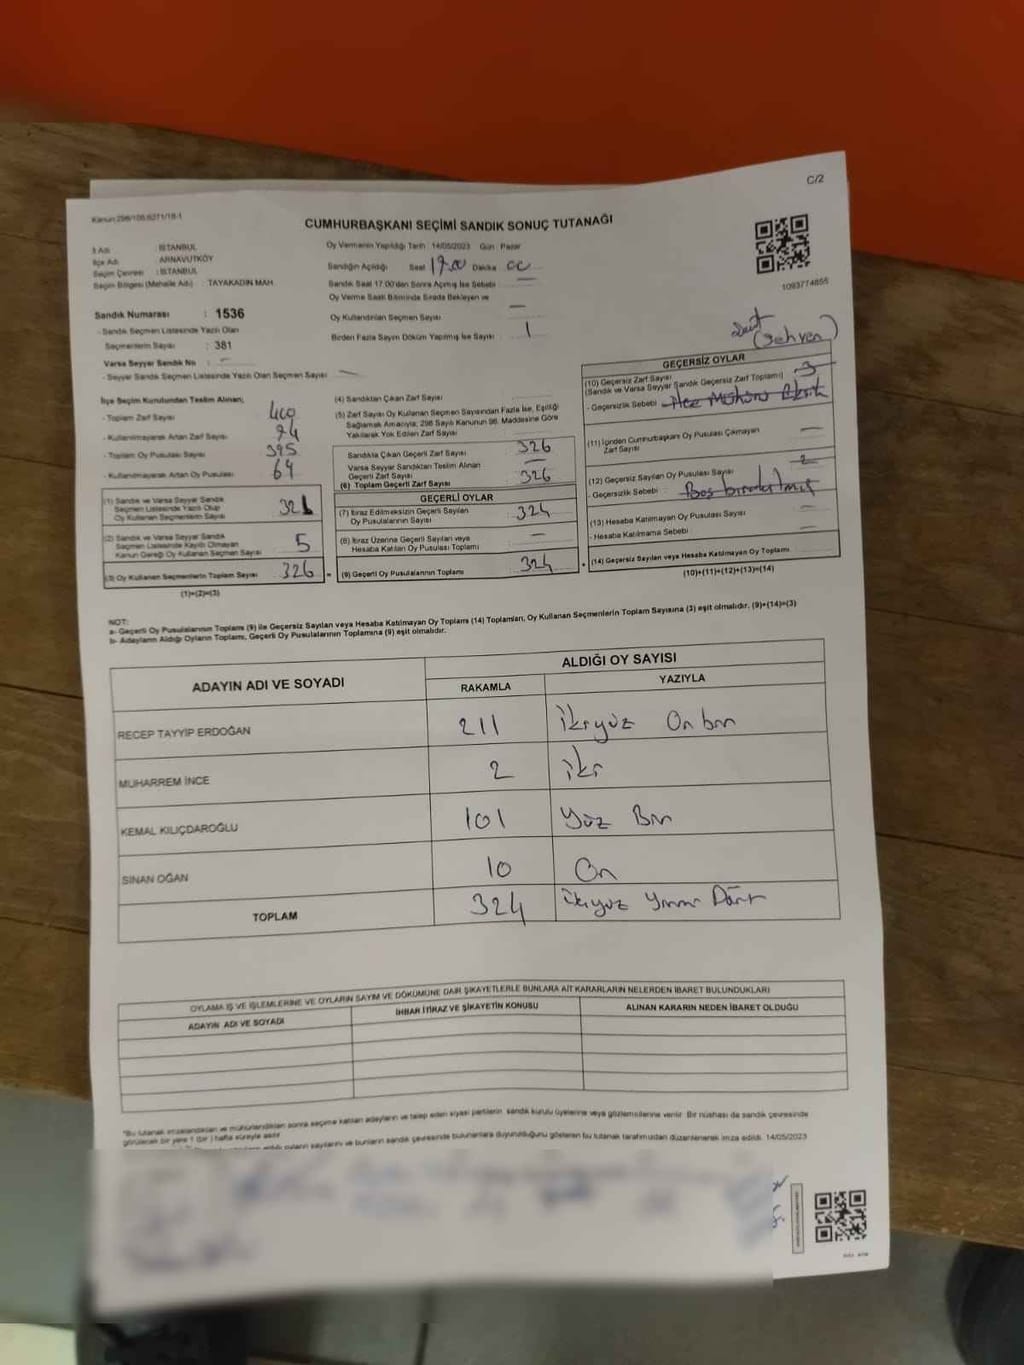 C/2
Kanun:298/105;6271/18-1
CUMHURBAŞKANI SEÇİMİ SANDIK SONUÇ TUTANAĞI
İl Adı : İSTANBUL
İlçe Adı : ARNAVUTKÖY
Seçim Çevresi : İSTANBUL
Seçim Bölgesi (Mahalle Adı) : TAYAKADIN MAH.
Sandık Numarası : 1536
- Sandık Seçmen Listesinde Yazılı Olan
Seçmenlerin Sayısı : 381
Varsa Seyyar Sandık No : -
- Seyyar Sandık Seçmen Listesinde Yazılı Olan Seçmen Sayısı : —
Oy Vermenin Yapıldığı Tarih : 14/05/2023 Gün : Pazar
Sandığın Açıldığı Saat Dakika
Sandık Saat 17.00'den Sonra Açmış İse Sebebi : —
Oy Verme Saati Bitiminde Sırada Bekleyen ve
Oy Kullandırılan Seçmen Sayısı —
Birden Fazla Sayım Döküm Yapılmış İse Sayısı : 1
1093774855
(Sehven)
İlçe Seçim Kurulundan Teslim Alınan;
- Toplam Zarf Sayısı 400
- Kullanılmayarak Artan Zarf Sayısı 74
- Toplam Oy Pusulası Sayısı 395
- Kullanılmayarak Artan Oy Pusulası 64
(1) Sandık ve Varsa Seyyar Sandık
Seçmen Listesinde Yazılı Olup
Oy Kullanan Seçmenlerin Sayısı 321
(2) Sandık ve Varsa Seyyar Sandık
Seçmen Listesinde Kayıtlı Olmayan
Kanun Gereği Oy Kullanan Seçmen Sayısı 5
(3) Oy Kullanan Seçmenlerin Toplam Sayısı 326
(1)+(2)=(3)
(4) Sandıktan Çıkan Zarf Sayısı
(5) Zarf Sayısı Oy Kullanan Seçmen Sayısından Fazla İse, Eşitliği
Sağlamak Amacıyla; 298 Sayılı Kanunun 98. Maddesine Göre
Yakılarak Yok Edilen Zarf Sayısı
Sandıkta Çıkan Geçerli Zarf Sayısı 326
Varsa Seyyar Sandıktan Teslim Alınan
Geçerli Zarf Sayısı —
(6) Toplam Geçerli Zarf Sayısı 326
GEÇERLİ OYLAR
(7) İtiraz Edilmeksizin Geçerli Sayılan
Oy Pusulalarının Sayısı 324
(8) İtiraz Üzerine Geçerli Sayılan veya
Hesaba Katılan Oy Pusulası Toplamı —
(9) Geçerli Oy Pusulalarının Toplamı 324
GEÇERSİZ OYLAR
(10) Geçersiz Zarf Sayısı 3
(Sandık ve Varsa Seyyar Sandık Geçersiz Zarf Toplamı)
- Geçersizlik Sebebi
(11) İçinden Cumhurbaşkanı Oy Pusulası Çıkmayan
Zarf Sayısı —
(12) Geçersiz Sayılan Oy Pusulası Sayısı 2
- Geçersizlik Sebebi : Boş bırakılmış
(13) Hesaba Katılmayan Oy Pusulası Sayısı —
- Hesaba Katılmama Sebebi : —
(14) Geçersiz Sayılan veya Hesaba Katılmayan Oy Toplamı
(10)+(11)+(12)+(13)=(14)
NOT:
a- Geçerli Oy Pusulalarının Toplamı (9) ile Geçersiz Sayılan veya Hesaba Katılmayan Oy Toplamı (14) Toplamları, Oy Kullanan Seçmenlerin Toplam Sayısına (3) eşit olmalıdır. (9)+(14)=(3)
b- Adayların Aldığı Oyların Toplamı, Geçerli Oy Pusulalarının Toplamına (9) eşit olmalıdır.
ADAYIN ADI VE SOYADI ALDIĞI OY SAYISI
RAKAMLA YAZIYLA
RECEP TAYYİP ERDOĞAN 211 İkiyüz On bir
MUHARREM İNCE 2 İki
KEMAL KILIÇDAROĞLU 101 Yüz Bir
SİNAN OĞAN 10 On
TOPLAM 324 İkiyüz Yirmi Dört
OYLAMA İŞ VE İŞLEMLERİNE VE OYLARIN SAYIM VE DÖKÜMÜNE DAİR ŞİKAYETLERLE BUNLARA AİT KARARLARIN NELERDEN İBARET BULUNDUKLARI
ADAYIN ADI VE SOYADI İHBAR İTİRAZ VE ŞİKAYETİN KONUSU ALINAN KARARIN NEDEN İBARET OLDUĞU
*Bu tutanak imzalandıktan ve mühürlendikten sonra seçime katılan adayların ve talep eden siyasi partilerin sandık kurulu üyelerine veya gözlemcilerine verilir. Bir nüshası da sandık çevresinde
görülecek bir yere 1 (bir) hafta süreyle asılır.
oyların sayılarını ve bunların sandık çevresinde bulunanlara duyurulduğunu gösteren bu tutanak tarafımızdan düzenlenerek imza edildi. 14/05/2023